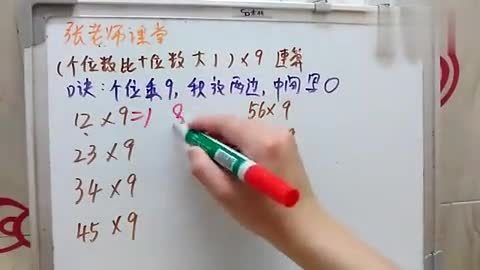 张老师课堂
(个位数比十位数大1)×9 速算
口诀:个位乘9,积放两边,中间写0
12×9=1 8 56×9
23×9
34×9
45×9